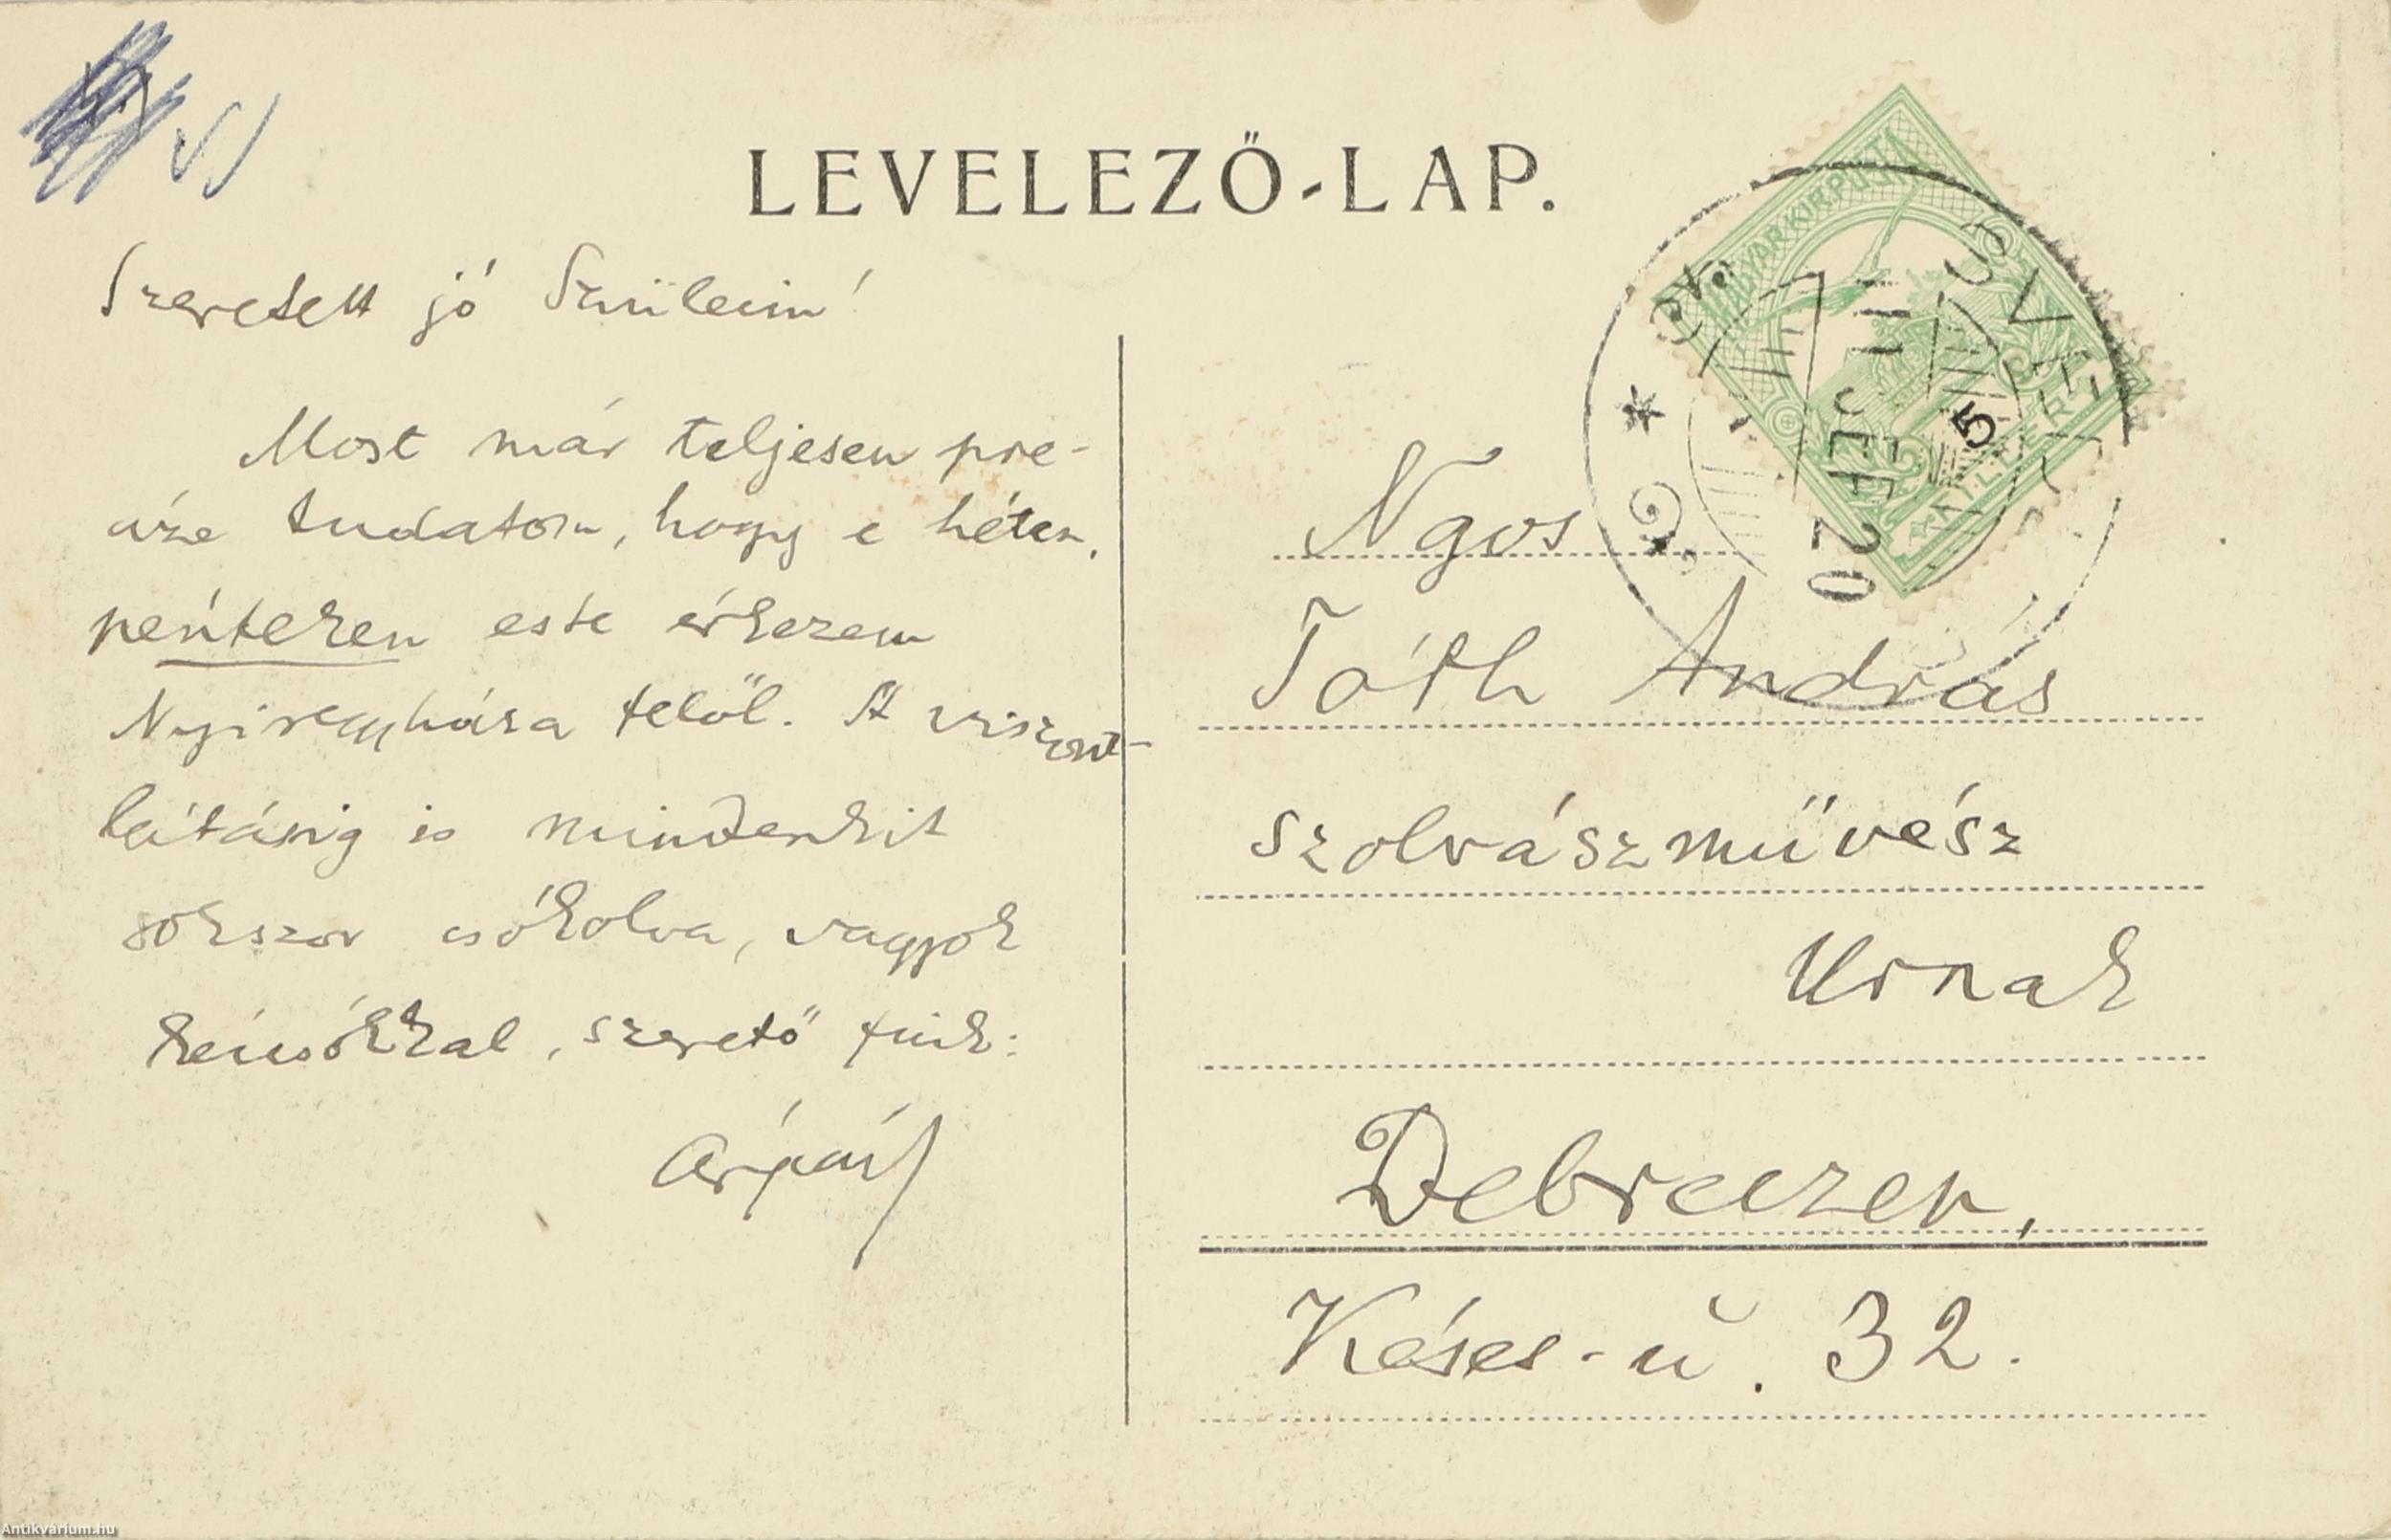 LEVELEZŐ-LAP.
Szeretett jó Szüleim!
Most már teljesen pre-
cize tudatom, hogy e héten,
pénteken este érkezem
Nyiregyháza felől. A viszont-
látásig is mindenkit
sokszor csókolva, vagyok
kézcsókkal, szerető fiuk:
Árpád
MAGYAR KIR. POSTA
5
FILLÉR
Ngos
Tóth András
szobrászművész
Urnak
Debreczen,
Késes-u. 32.
Antikvárium.hu